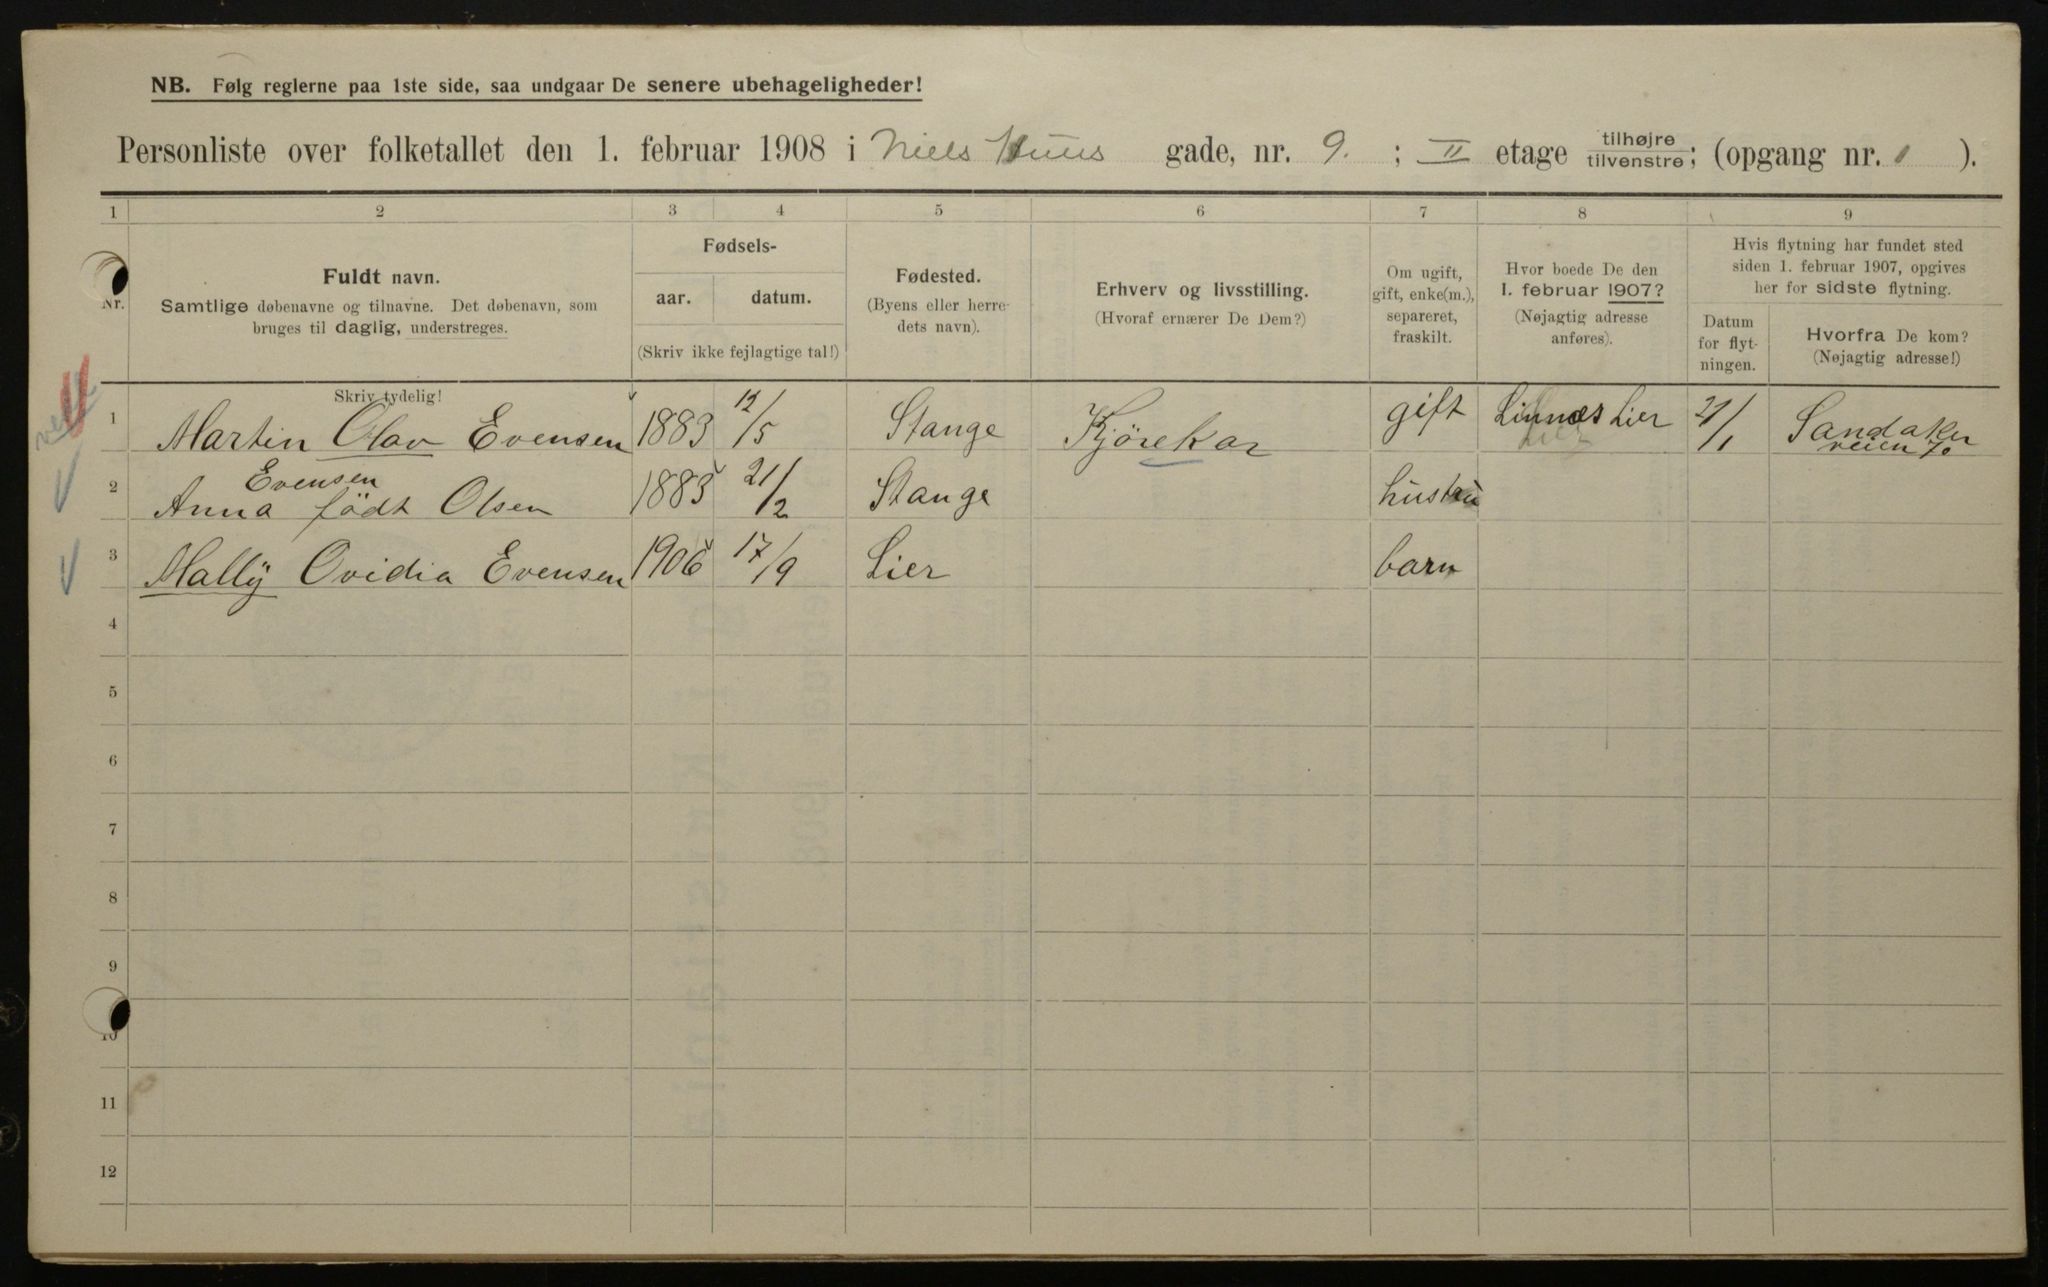 NB. Følg reglerne paa 1ste side, saa undgaar De senere ubehageligheder!
Personliste over folketallet den 1. februar 1908 i Niels Huus gade, nr. 9. ; II etage tilhøjre tilvenstre; (opgang nr. 1 ).
1 2 3 4 5 6 7 8 9
Nr.
Fuldt navn.
Samtlige døbenavne og tilnavne. Det døbenavn, som
bruges til daglig, understreges.
Skriv tydelig!
Fødsels-
aar. datum.
(Skriv ikke fejlagtige tal!)
Fødested.
(Byens eller herre-
dets navn).
Erhverv og livsstilling.
(Hvoraf ernærer De Dem?)
Om ugift,
gift, enke(m.),
separeret,
fraskilt.
Hvor boede De den
1. februar 1907?
(Nøjagtig adresse
anføres).
Hvis flytning har fundet sted
siden 1. februar 1907, opgives
her for sidste flytning.
Datum
for flyt-
ningen.
Hvorfra De kom?
(Nøjagtig adresse!)
1 Martin Olav Evensen 1883 12/5 Stange Kjörekar gift Linnes Lier 21/1 Sandaker
veien 70
Evensen
2 Anna födt Olsen 1885 21/2 Stange hustru
3 Mally Ovidia Evensen 1906 17/9 Lier barn
4
5
6
7
8
9
10
11
12